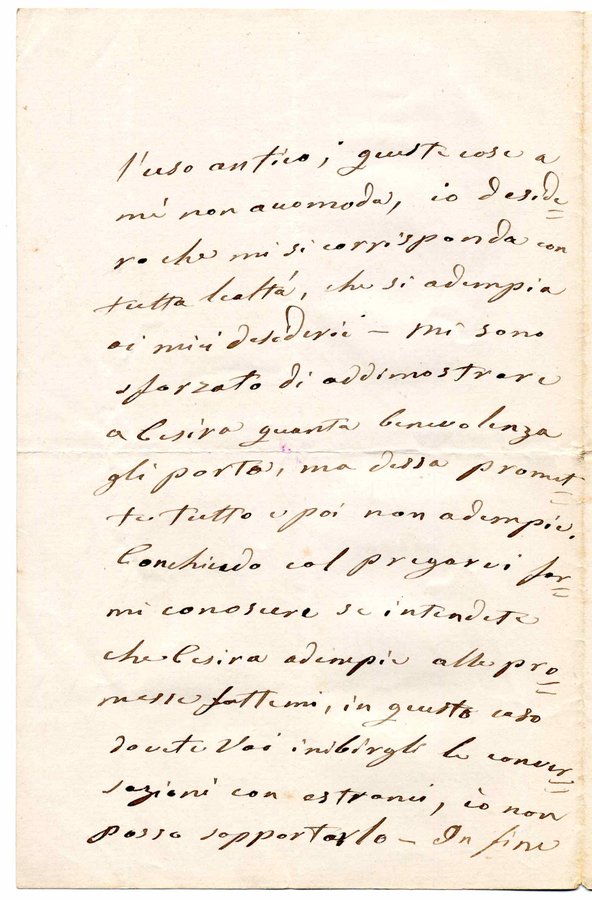 l'uso antico; queste cose a
me non accomoda, io deside=
ro che mi si corrisponda con
tutta lealtà, che si adempia
ai miei desiderii – Mi sono
sforzato di addimostrare
a Cesira quanta benevolenza
gli porto, ma dessa promet=
te tutto e poi non adempie.
Conchiudo col pregarvi far=
mi conoscere se intendete
che Cesira adempie alle pro=
messe fattemi, in questo caso
dovete Voi inibirgli le conver=
sazioni con estranei, io non
posso sopportarlo – In fine